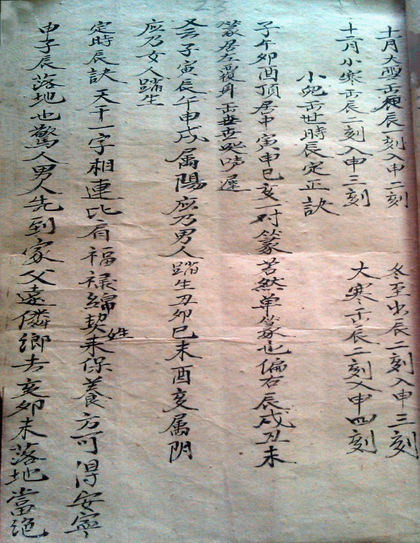 十一月大雪出辰一刻入申二刻 冬至出辰二刻入申三刻
十二月小寒出辰二刻入申三刻 大寒出辰二刻入申四刻
小兒出世時辰定正訣
子午卯酉頂居中寅申巳亥一对篆若然单篆也偏右辰戌丑未
篆居左覆身出世
又云子寅辰午申戌属陽应乃男人踏生丑卯巳未酉亥属阴
应乃女人踏生
定時辰訣天干一字相連比肩福禄綿契姓来保养方可得安寧
申子辰落地也驚人男人先到家父遠鄰鄉去亥卯未落地當绝